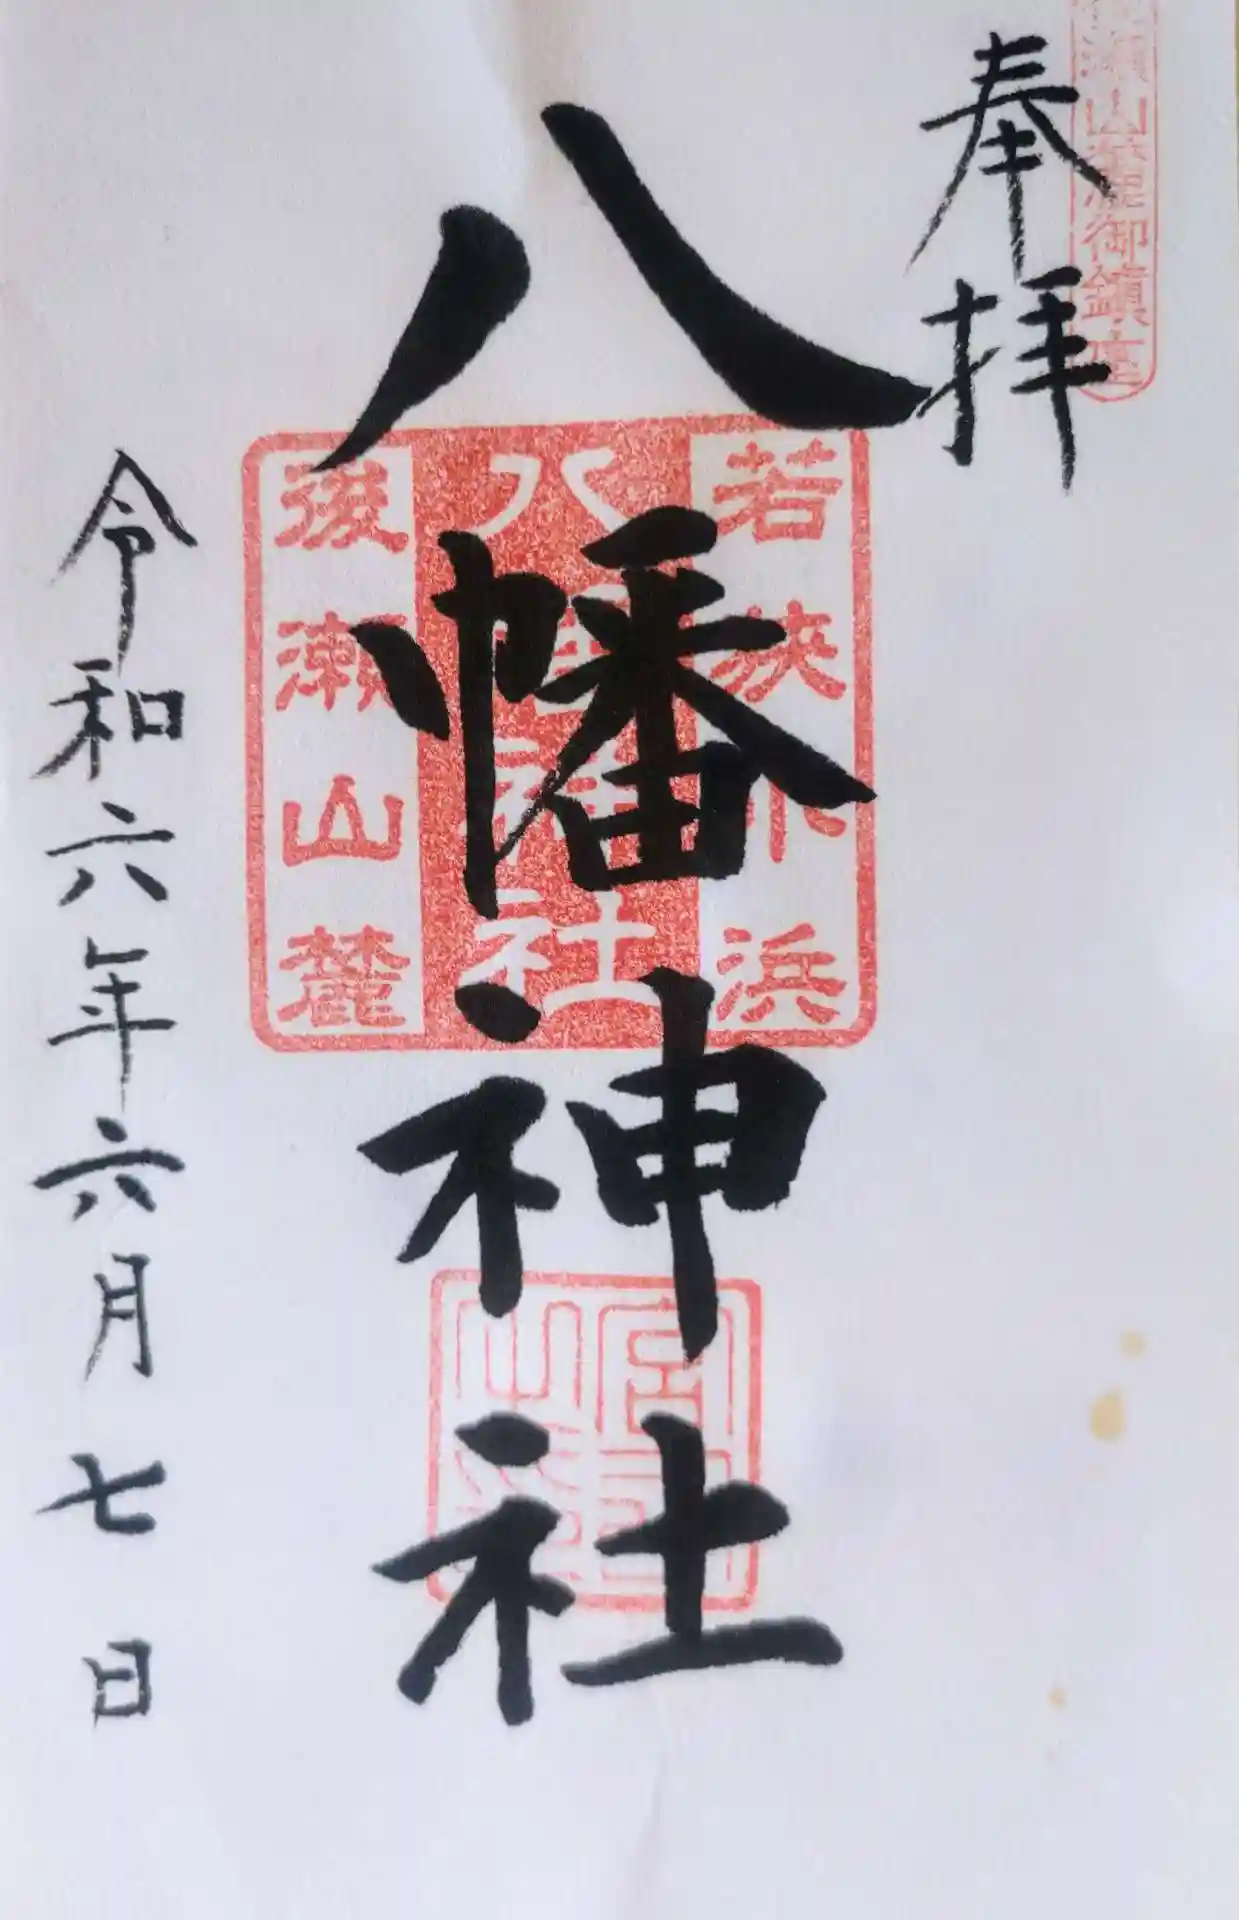 瀬山麓御鎮座
奉拝
八幡神社
若狭小浜
八幡神社
後瀬山麓
令和六年六月七日